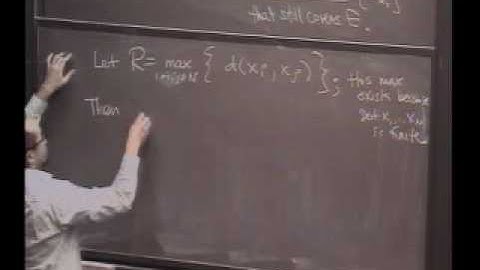 that still covers E.
Let R = max { d(xi, xj) } ; this max
exists because
set x1, ... xN
is finite
Then